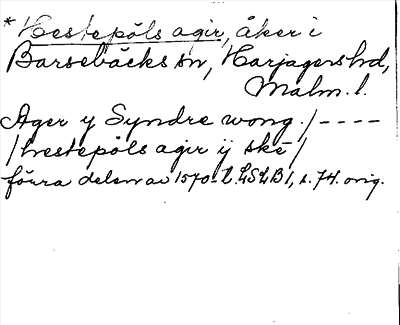 * Hestepöls agir, åker i
Barsebäcks sn, Harjagers hd,
Malm. l.
Ager y Syndre wong. / - - - -
/ hestepöls agir ij ske /
förra delen av 1570-t. LSLB 1, s. 74. orig.